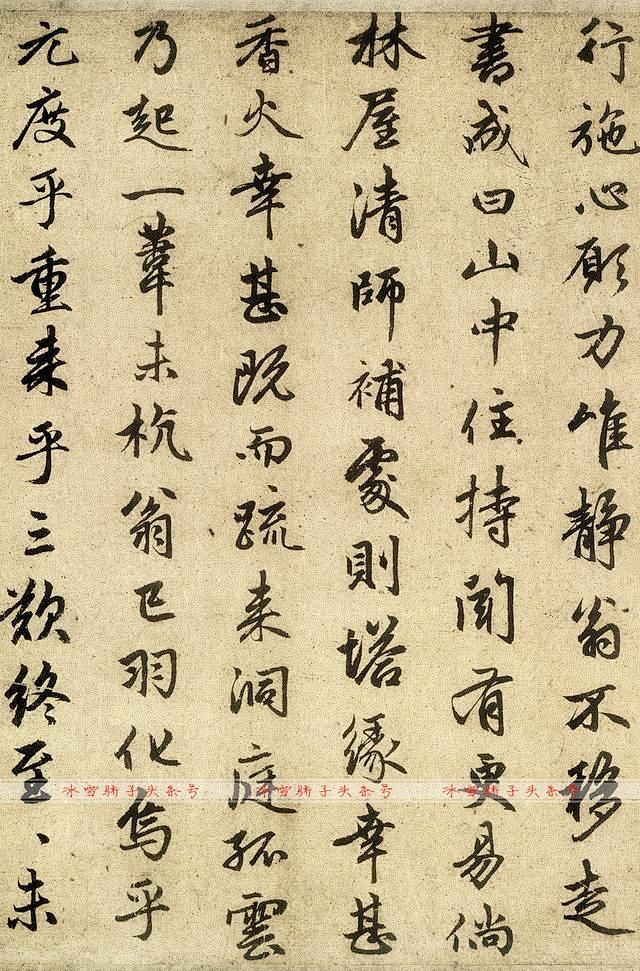 行施心願力唯静翁不移走
書成曰山中住持聞有更易倘
林屋清師補處則塔緣幸甚
香火幸甚既而疏来洞庭孤雲
乃起一葦未杭翁已羽化烏乎
元度乎重来乎三歎終至、未
冰雪骄子头条号 冰雪骄子头条号 冰雪骄子头条号